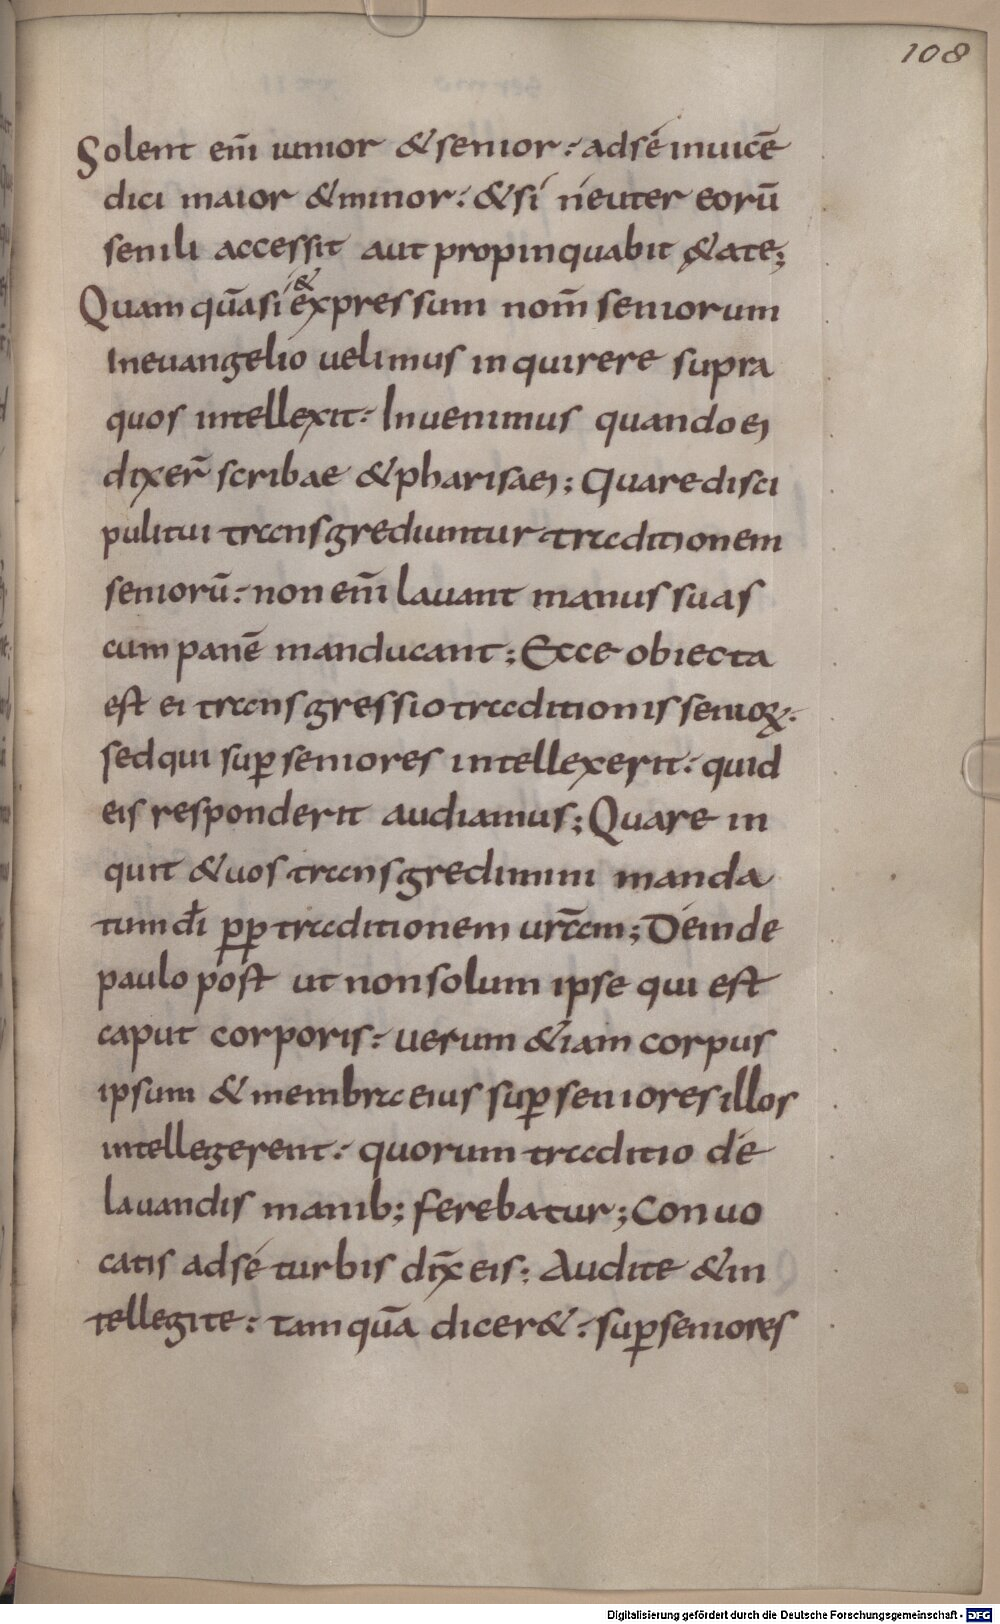 108
Solent em̄ iunior & senior: ad se inuicē
dici maior & minor: & si neuter eorū
senili accessit aut propinquabit &ate;
Quam quāsi & expressum nom̄ seniorum
In euangelio uelimus inquirere supra
quos intellexit: Inuenimus quando ei
dixer̄ scribae & pharisaei; Quare disci
puli tui transgrediuntur traditionem
seniorū: non em̄ lauant manus suas
cum panē manducant; Ecce obiecta
est ei transgressio traditionis senioꝝ:
sed qui suꝑ seniores intellexerit: quid
eis responderit audiamus; Quare in
quit & uos transgredimini manda
tum dī ꝓp traditionem ur̄am; Deinde
paulo post ut non solum ipse qui est
caput corporis: uerum &iam corpus
ipsum & membra eius suꝑ seniores illos
intellegerent: quorum traditio de
lauandis manib; ferebatur; Conuo
catis ad se turbis dix̄ eis: Audite & in
tellegite: tam quā dicer&: suꝑ seniores
Digitalisierung gefördert durch die Deutsche Forschungsgemeinschaft - DFG